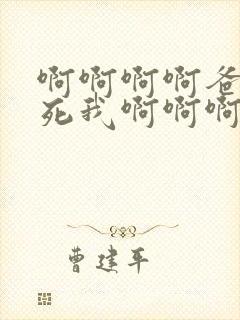 啊啊啊啊爸
死我啊啊啊
曹建平